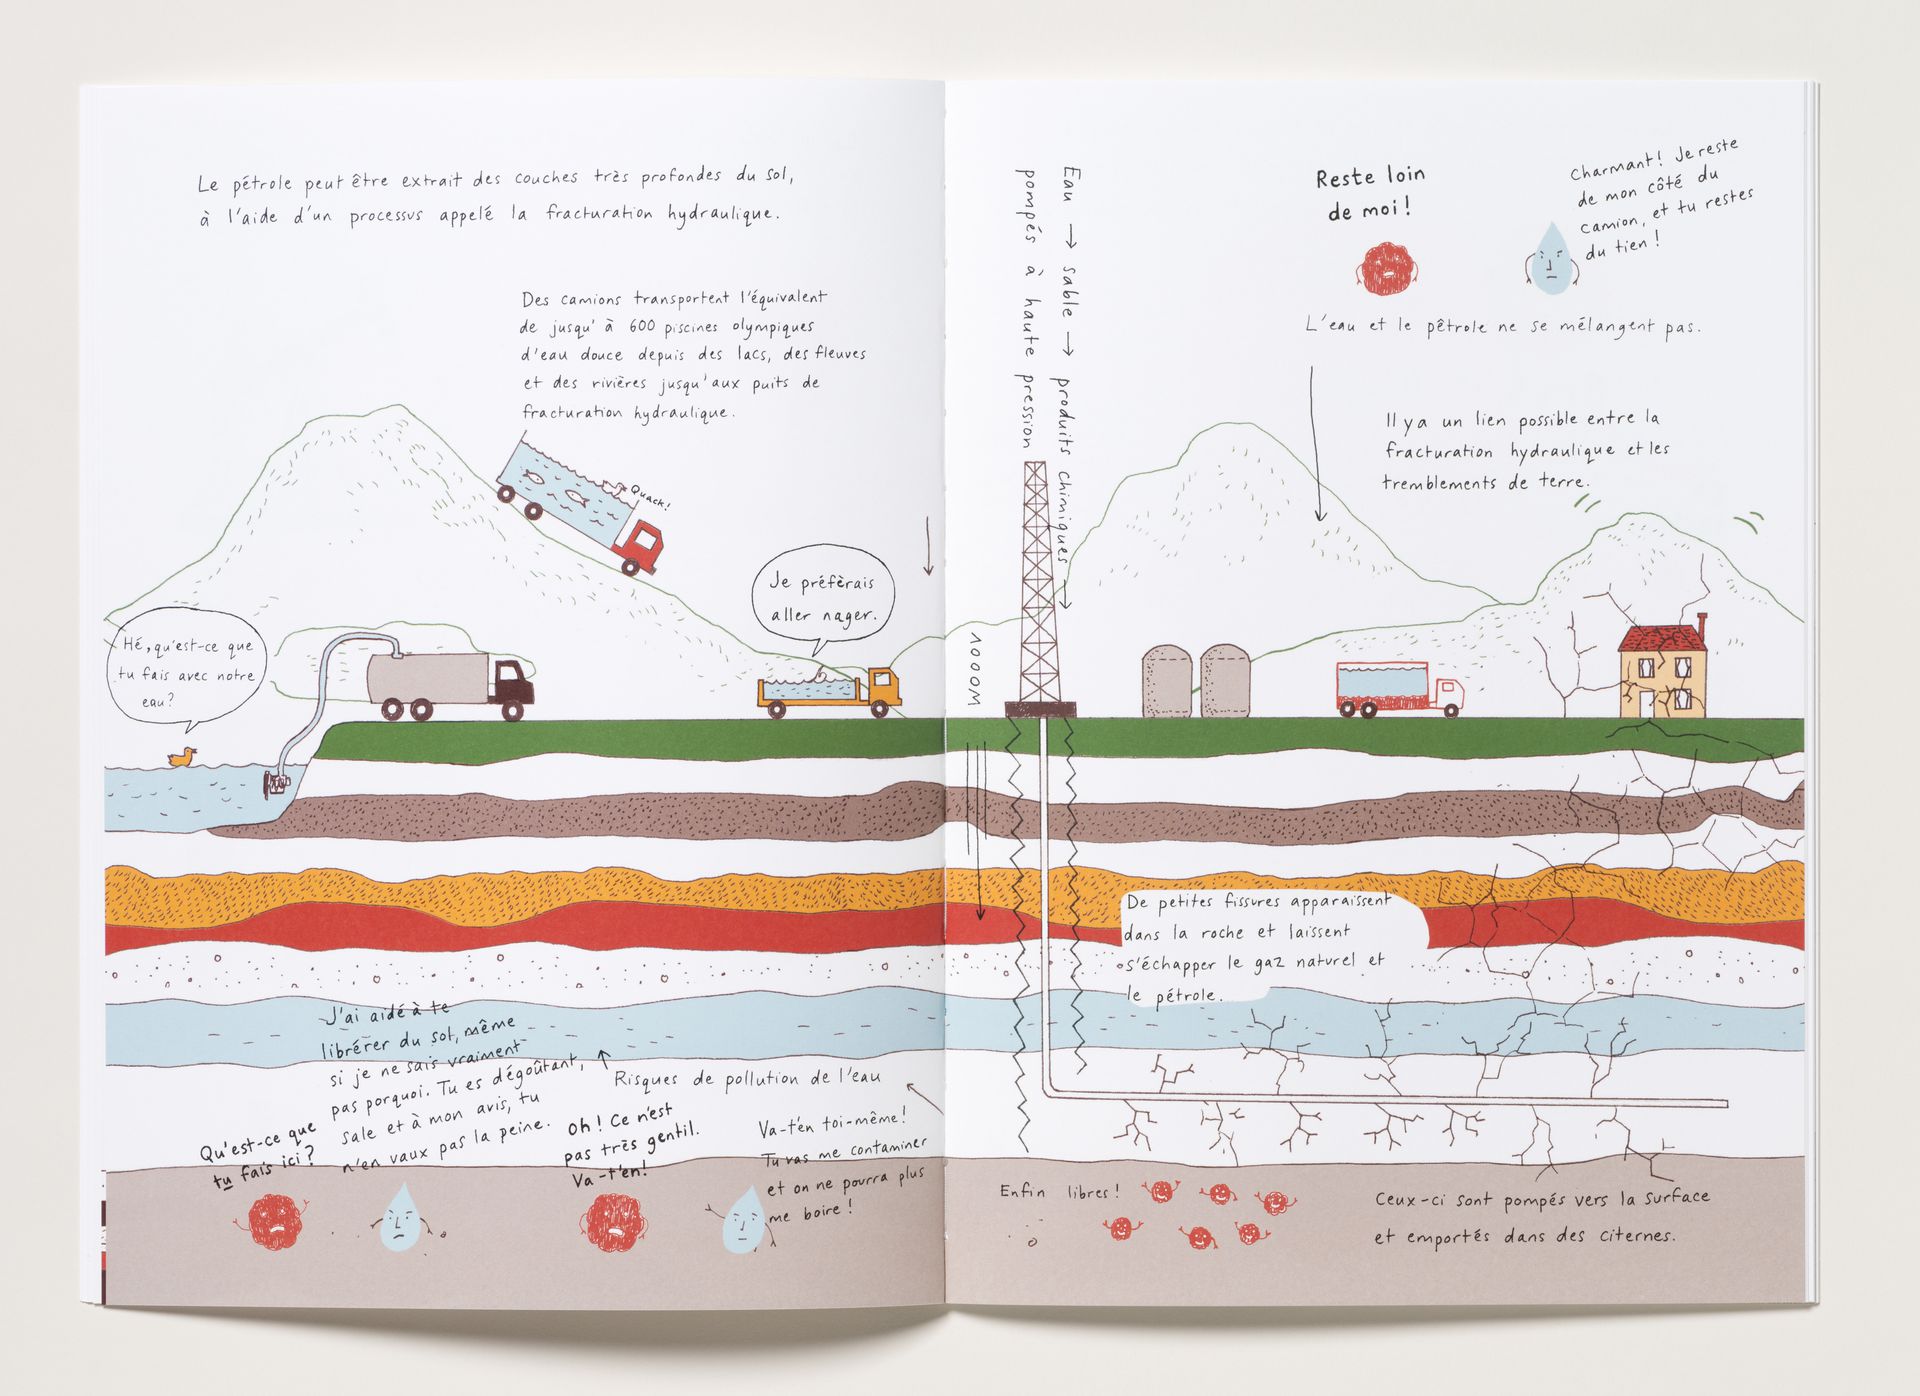 Le pétrole peut être extrait des couches très profondes du sol,
à l'aide d'un processus appelé la fracturation hydraulique.
Des camions transportent l'équivalent
de jusqu'à 600 piscines olympiques
d'eau douce depuis des lacs, des fleuves
et des rivières jusqu'aux puits de
fracturation hydraulique.
Quack!
Je préfèrais
aller nager.
Hé, qu'est-ce que
tu fais avec notre
eau?
J'ai aidé à te
librérer du sol, même
si je ne sais vraiment
pas porquoi. Tu es dégoûtant,
sale et à mon avis, tu
n'en vaux pas la peine.
Qu'est-ce que
tu fais ici?
Risques de pollution de l'eau
Oh! Ce n'est
pas très gentil.
Va-t'en!
Va-t'en toi-même!
Tu vas me contaminer
et on ne pourra plus
me boire!
Eau → sable → produits chimiques →
pompés à haute pression
VOOOM
Reste loin
de moi!
Charmant! Je reste
de mon côté du
camion, et tu restes
du tien!
L'eau et le pétrole ne se mélangent pas.
Il y a un lien possible entre la
fracturation hydraulique et les
tremblements de terre.
De petites fissures apparaissent
dans la roche et laissent
s'échapper le gaz naturel et
le pétrole.
Enfin libres!
Ceux-ci sont pompés vers la surface
et emportés dans des citernes.